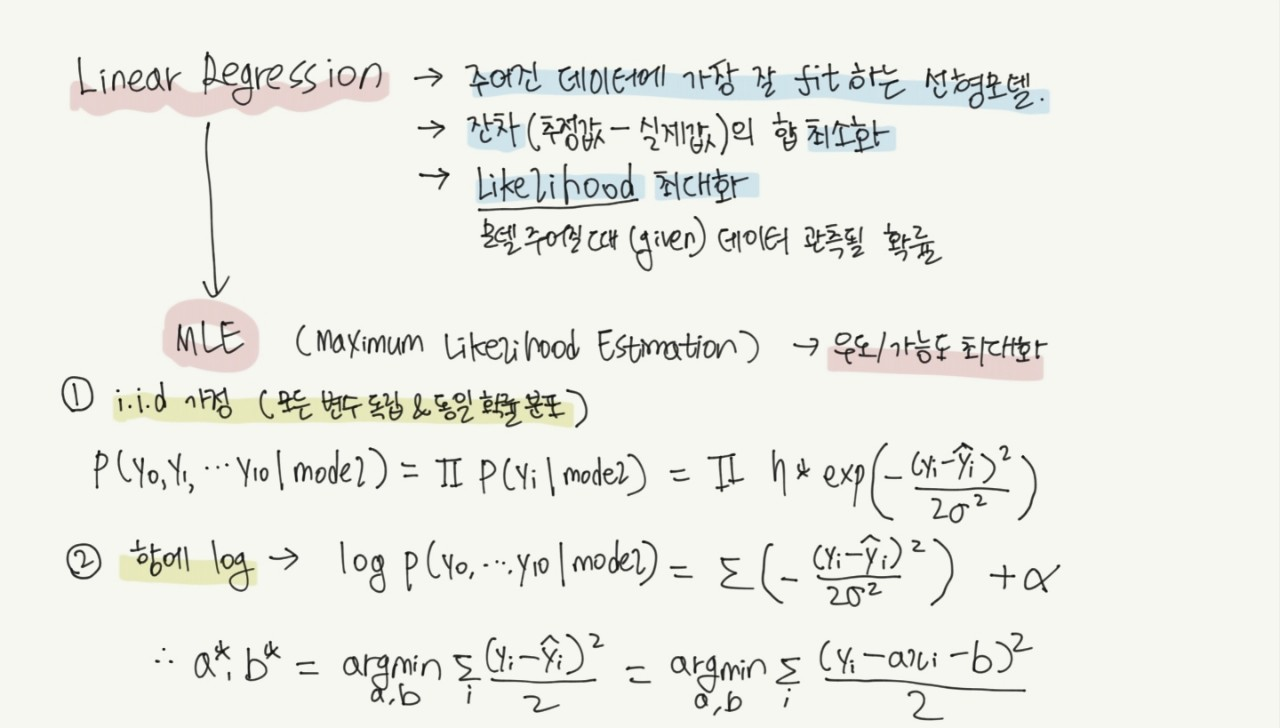 Linear Regression → 주어진 데이터에 가장 잘 fit 하는 선형모델.
→ 잔차 (추정값 - 실제값)의 합 최소화
→ Likelihood 최대화
모델 주어질 때 (given) 데이터 관측될 확률
MLE (Maximum Likelihood Estimation) → 우도/가능도 최대화
① i.i.d 가정 (모든 변수 독립 & 동일 확률 분포)
P(y₀, y₁, ⋯ y₁₀ | model) = Π P(yᵢ | model) = Π η * exp(-(yᵢ-ŷᵢ)²/2σ²)
② 항에 log → log P(y₀, ⋯, y₁₀ | model) = Σ(-(yᵢ-ŷᵢ)²/2σ²) + α
∴ a*, b* = argmin a,b Σ i (yᵢ-ŷᵢ)²/2 = argmin a,b Σ i (yᵢ-axᵢ-b)²/2